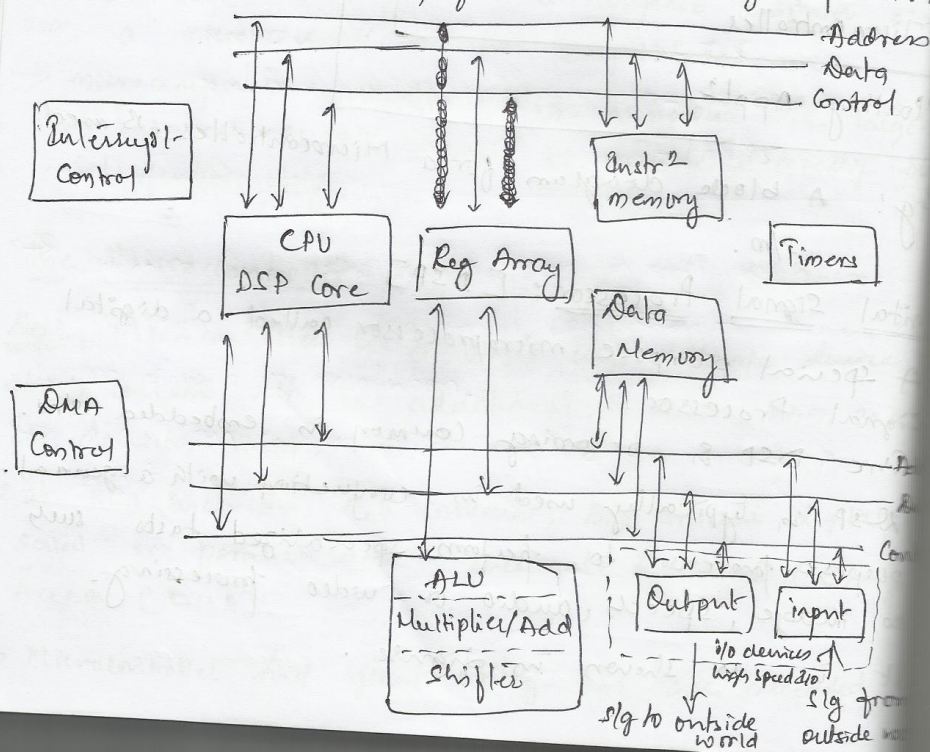 Address
Data
Control
Interrupt
Control
Instrn
memory
CPU
DSP Core
Reg Array
Timers
Data
Memory
DMA
Control
A
Con
ALU
Multiplier/Add
Shifter
Output
input
i/o devices
high speed I/O
S/g to outside
world
S/g from
outside